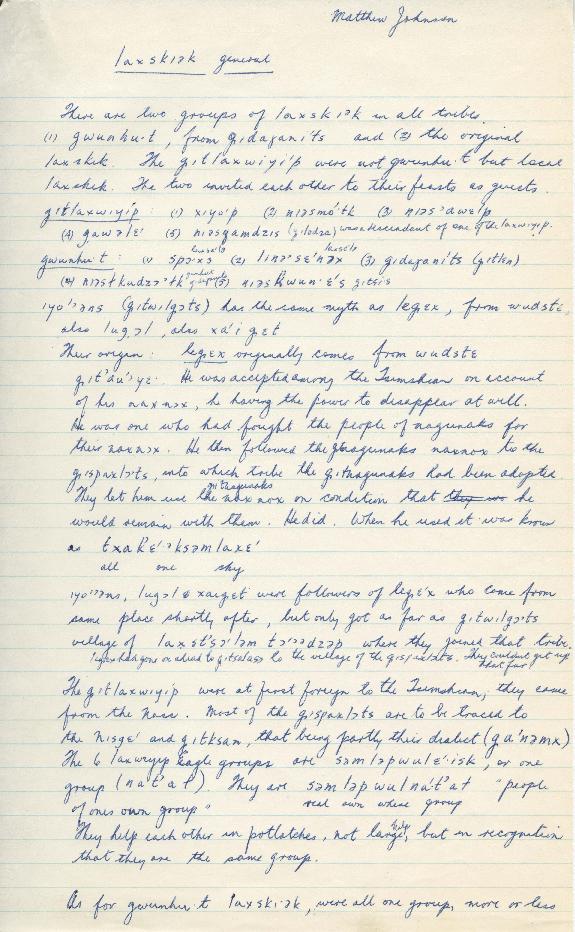 Matthew Johnson
laxskiək general
There are two groups of laxskiək in all tribes.
(1) gwunhu·t, from gidaganits and (2) the original
laxshek. The gitlaxwiyi´p were not gwunhu·t but local
laxshek. The two invited each other to their feasts as guests.
gitlaxwiyip: (1) xiyo´p (2) niəsmo´tk (3) niəs'awɛlp
(4) gawəlɛ´ (5) niəsgamdzis (gilodza) was descendant of one of the laxwiyip.
gwunhu·t: (1) spɔ·xs (2) linəse´nəx (3) gidaganits (gitlen)
(4) niəstkudzə·tk (5) niəskwun·ɛ´s gitsis
iyo´ɔns (gitwilgɔts) has the same myth as legɛx, from wudstɛ,
also lugɔl, also xa´iget
Their origin: legɛx originally comes from wudstɛ
He was accepted among the Tsimshian on account
of his naxnɔx, he having the power to disappear at will.
He was one who had fought the people of nagunaks for
their naxnɔx. He then followed the nagunaks naxnox to the
gispaxlɔts, into which tribe the gitnagunaks had been adopted.
They let him use the gitnagunaks naxnox on condition that they wo he
would remain with them. He did. When he used it was known
as txakɛ´·ksəmlaxɛ´
all one sky
iyo´ɔns, lugɔl & xaiget were followers of legɛ´x who came from
same place shortly after, but only got as far as gitwilgɔts
village of where they joined that tribe.
legɛx had gone on ahead to gitsalasɔ to the village of the gispaxlɔts. They couldnt get up that far!
The gitlaxwiyi´p were at first foreign to the Tsimshian; they came
from the Nass. Most of the gispaxlɔts are to be traced to
the nisgɛ´ and gitksan, that being partly their dialect (ga´nəmx)
The 6 laxwiyip Eagle groups are səmləpwulɛ´·isk, or one
group (na´t'at). They are səmləpwulna´t'at "people
of ones own group" real own whose group
They help each other in potlatches, not large help, but in recognition
that they are the same group.
As for gwunhu·t laxskiək, were all one group, more or less